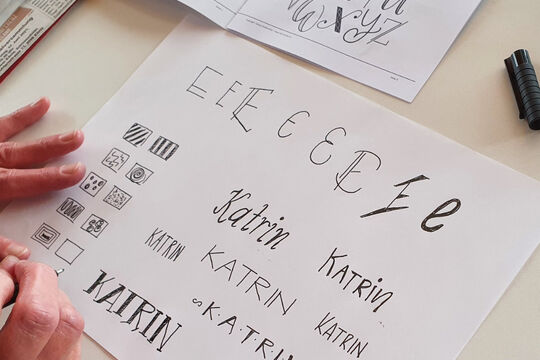 XYZ
E E E E E E E E e
Katrin
KATRIN
KATRIN
KATRIN
KATRIN
KATRIN
K·A·T·R·I·N